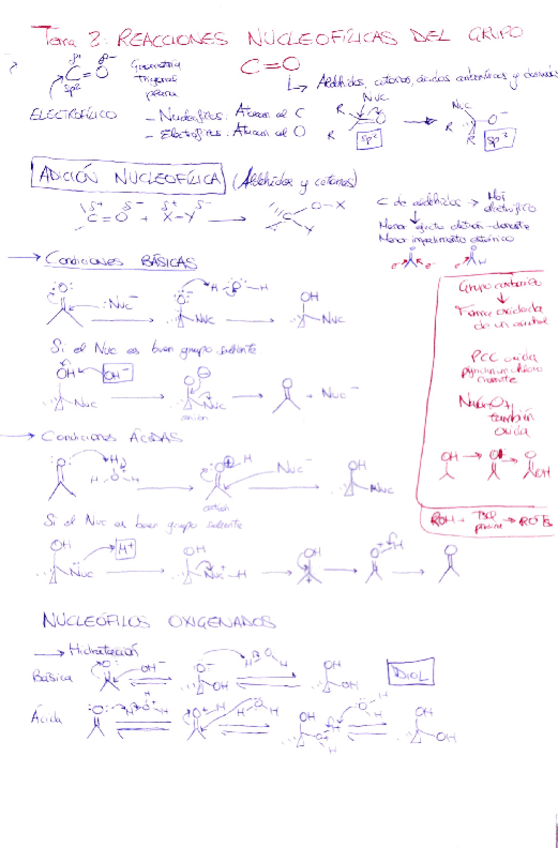 Tema 3: REACCIONES NUCLEOFÍLICAS DEL GRUPO
C=O
δ+ δ-
C=O
sp2
Geometría
Trigonal
plana
Aldehídos, cetonas, ácidos carboxílicos y derivados
ELECTROFÍLICO
- Nucleófilos: Atacan al C
- Electrófilos: Atacan al O
Nuc
R
R
O
sp2
Nuc
R
R
O-
sp3
ADICIÓN NUCLEOFÍLICA (Aldehídos y cetonas)
δ+ δ- δ+ δ-
C=O + X-Y
O-X
Y
C de aldehídos → Más electrofílico
Menor efecto electrón-donante
Menor impedimento estérico
e- e-
e- H
→ Condiciones BÁSICAS
O
:Nuc-
O-
Nuc
H O H
OH
Nuc
Si el Nuc es buen grupo saliente
OH
OH-
Nuc
O
Nuc
anión
O
+ Nuc-
→ Condiciones ÁCIDAS
O
H
H O H
O H
catión
Nuc-
OH
Nuc
Si el Nuc es buen grupo saliente
OH
Nuc
H+
OH
Nuc+-H
OH
+
O+ H
O
Grupo carbonilo
Forma oxidada
de un alcohol
PCC oxida
también
oxida
OH
OH
O
OH
ROH +
→ ROTs
NUCLEÓFILOS OXIGENADOS
→ Hidratación
Básica
O
OH-
O-
OH
H O H
OH
OH
DIOL
Ácida
O
H O+ H
H
O+ H
H O H
OH
O+ H
H
H O H
OH
OH